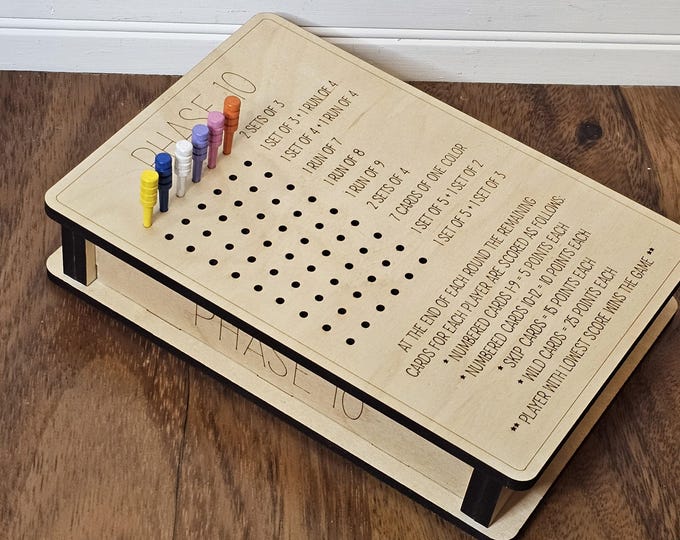 PHASE 10
2 SETS OF 3
1 SET OF 3 + 1 RUN OF 4
1 SET OF 4 + 1 RUN OF 4
1 RUN OF 7
1 RUN OF 8
1 RUN OF 9
2 SETS OF 4
7 CARDS OF ONE COLOR
1 SET OF 5 + 1 SET OF 2
1 SET OF 5 + 1 SET OF 3
AT THE END OF EACH ROUND THE REMAINING
CARDS FOR EACH PLAYER ARE SCORED AS FOLLOWS:
* NUMBERED CARDS 1-9 = 5 POINTS EACH
* NUMBERED CARDS 10-12 = 10 POINTS EACH
* SKIP CARDS = 15 POINTS EACH
* WILD CARDS = 25 POINTS EACH
** PLAYER WITH LOWEST SCORE WINS THE GAME **
PHASE 10